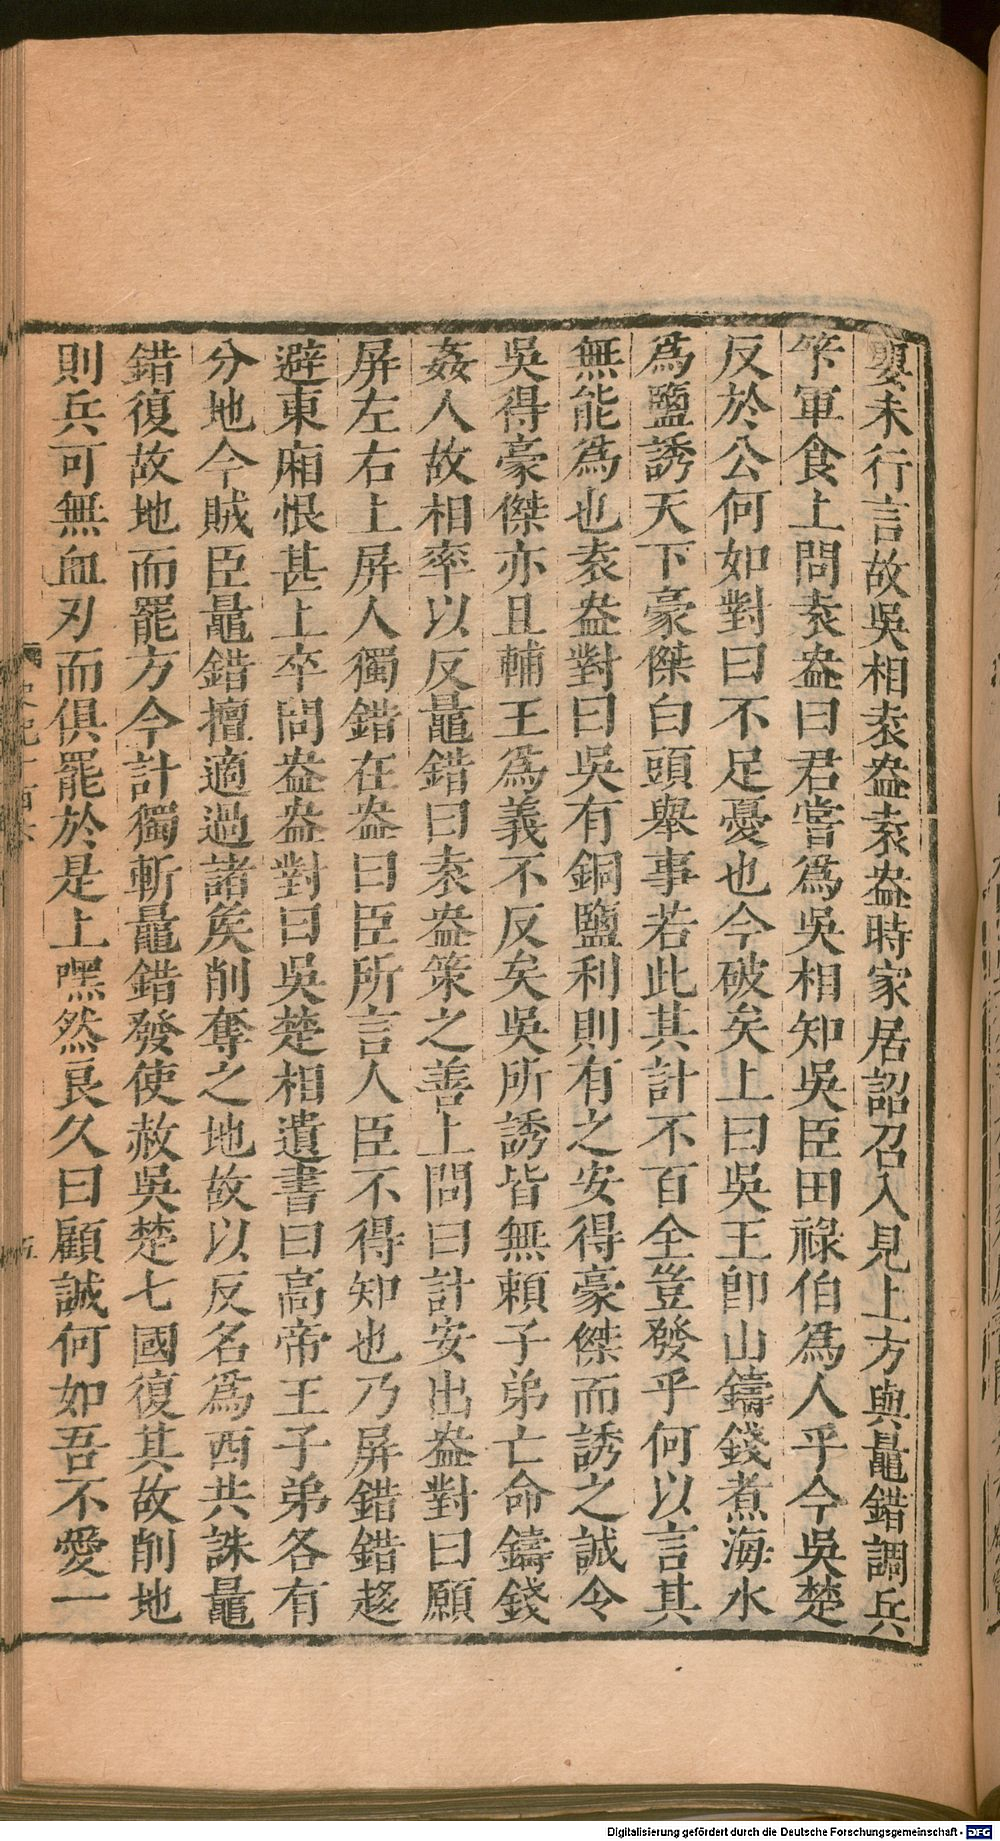 嬰未行言故吳相袁盎袁盎時家居詔召入見上方與鼂錯調兵
筭軍食上問袁盎曰君嘗爲吳相知吳臣田祿伯爲人乎今吳楚
反於公何如對曰不足憂也今破矣上曰吳王卽山鑄錢煮海水
爲鹽誘天下豪傑白頭舉事若此其計不百全豈發乎何以言其
無能爲也袁盎對曰吳有銅鹽利則有之安得豪傑而誘之誠令
吳得豪傑亦且輔王爲義不反矣吳所誘皆無賴子弟亡命鑄錢
姦人故相率以反鼂錯曰袁盎策之善上問曰計安出盎對曰願
屏左右上屏人獨錯在盎曰臣所言人臣不得知也乃屏錯錯趍
避東廂恨甚上卒問盎盎對曰吳楚相遺書曰高帝王子弟各有
分地今賊臣鼂錯擅適過諸矦削奪之地故以反名爲西共誅鼂
錯復故地而罷方今計獨斬鼂錯發使赦吳楚七國復其故削地
則兵可無血刃而俱罷於是上嘿然良久曰顧誠何如吾不愛一
五
Digitalisierung gefördert durch die Deutsche Forschungsgemeinschaft - DFG